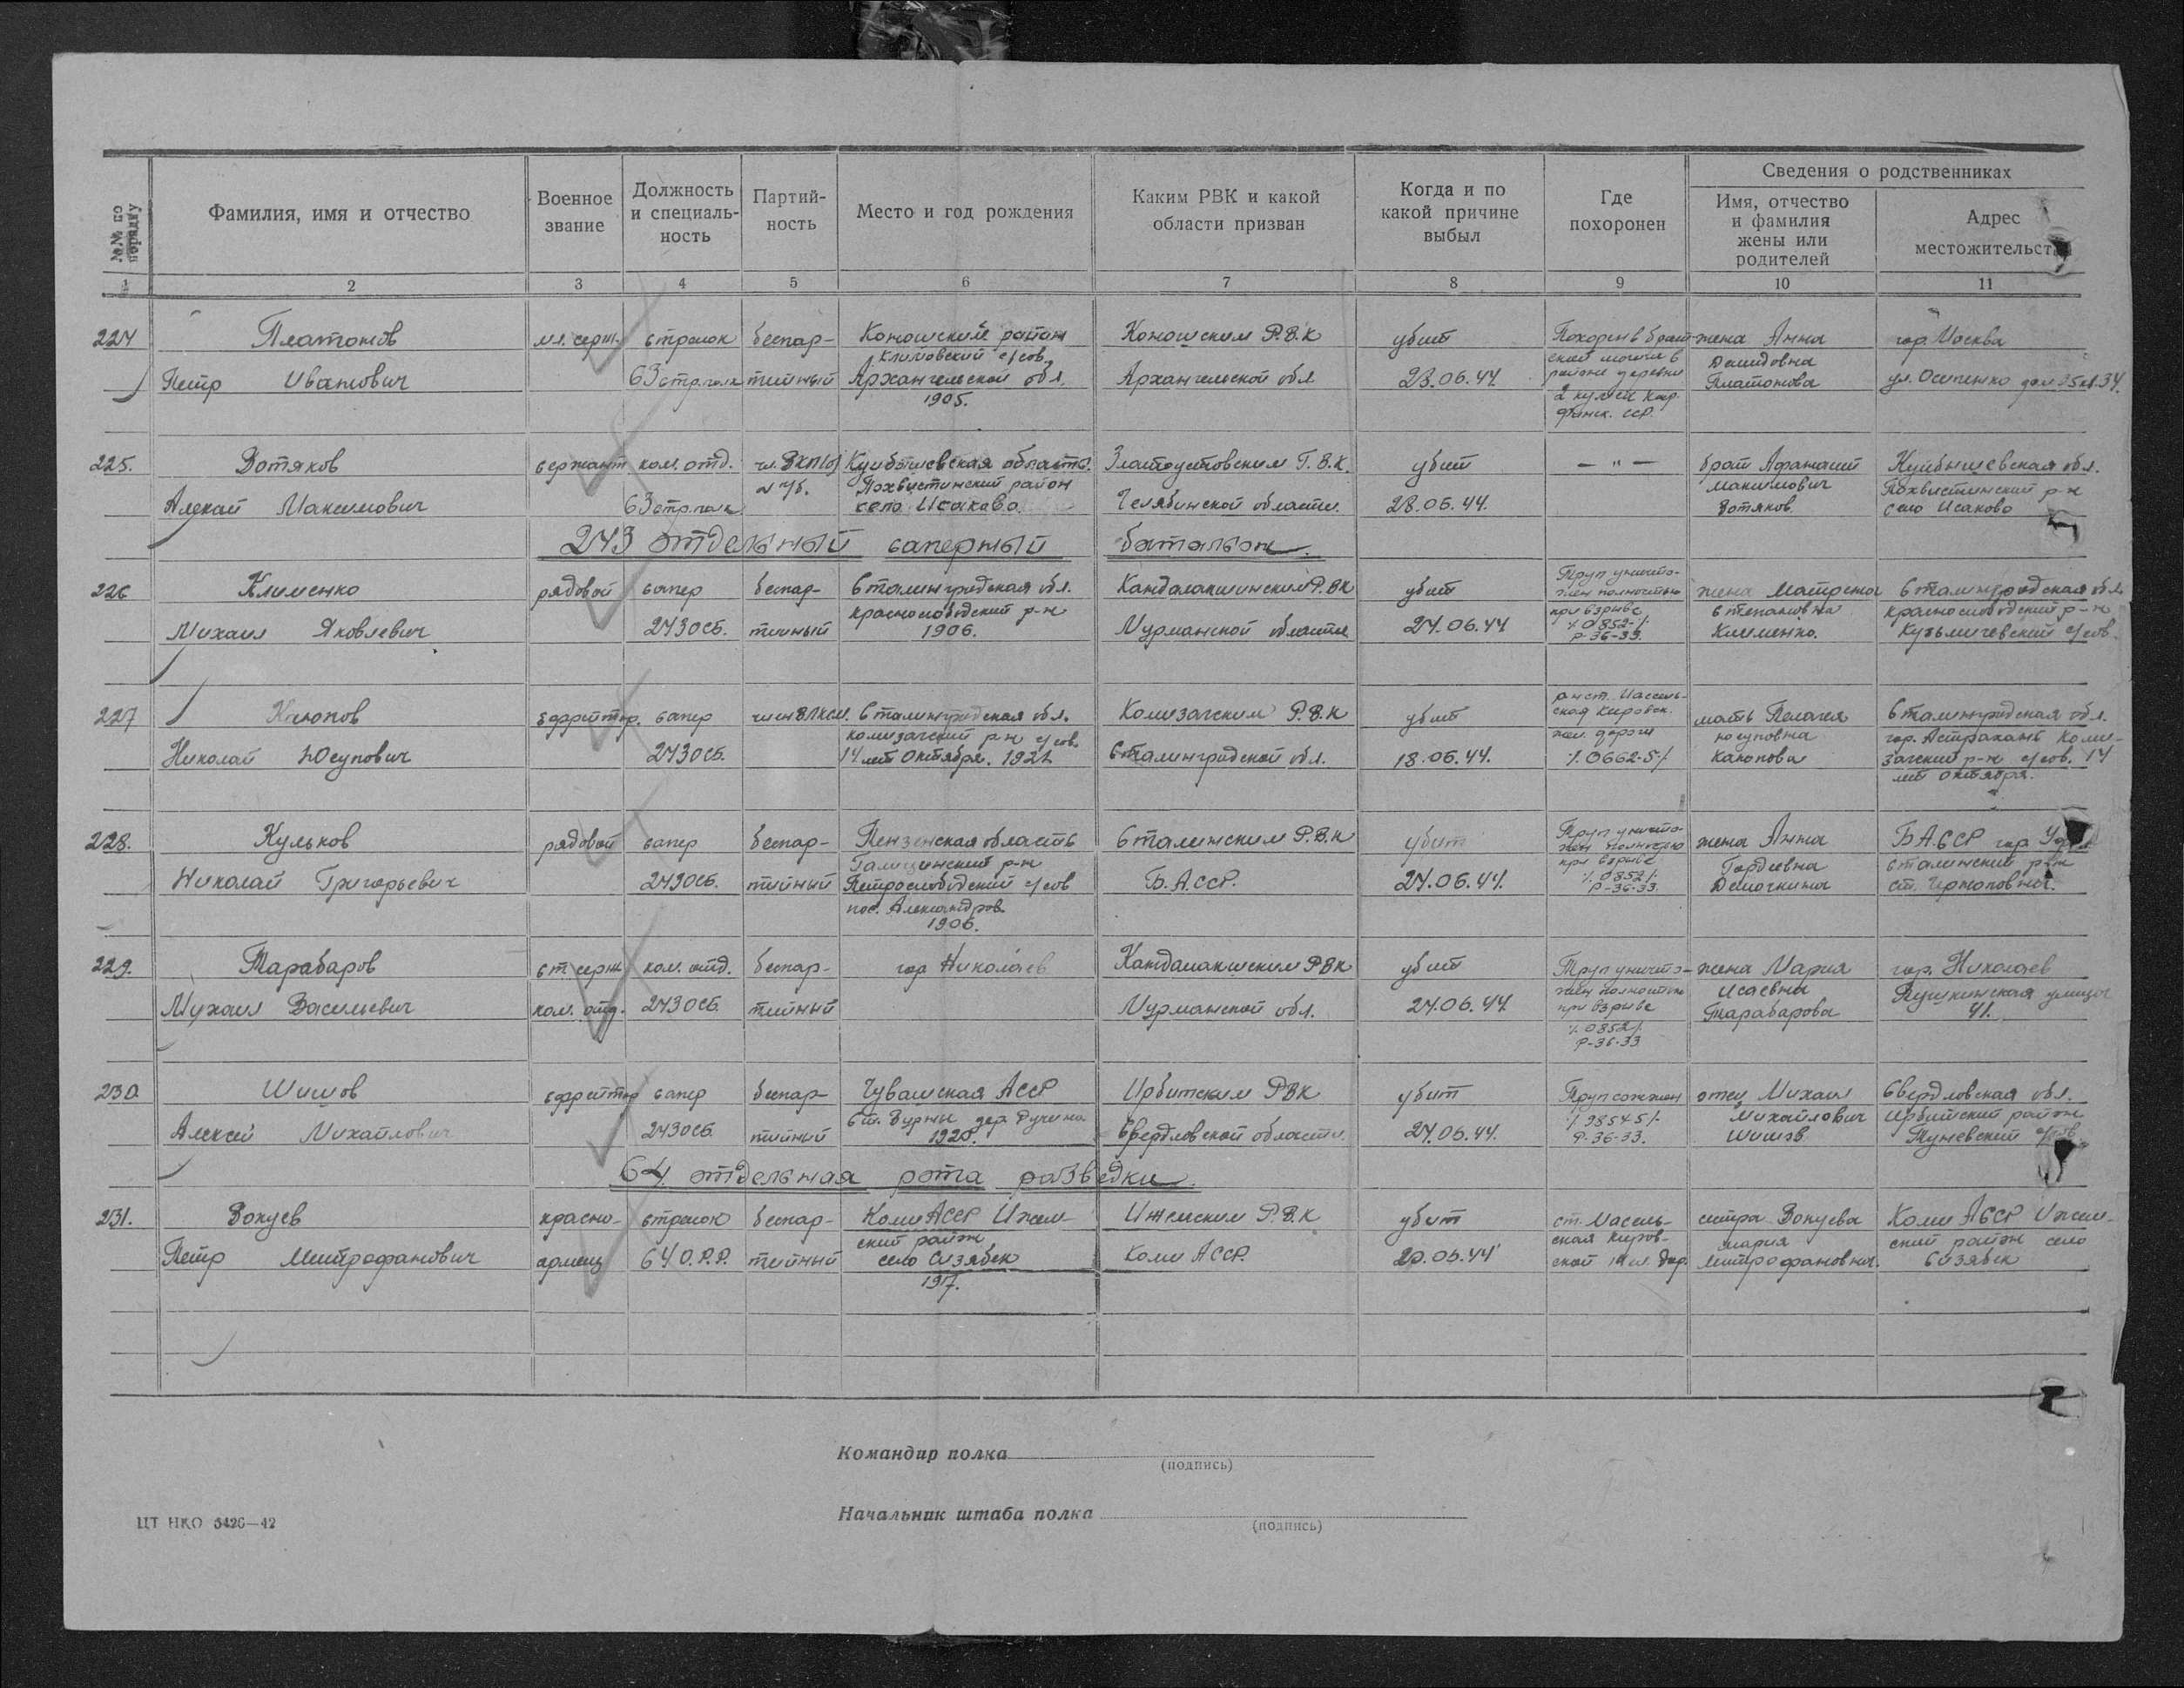 №№ по порядку
Фамилия, имя и отчество
Военное звание
Должность и специаль-ность
Партий-ность
Место и год рождения
Каким РВК и какой области призван
Когда и по какой причине выбыл
Где похоронен
Сведения о родственниках
Имя, отчество и фамилия жены или родителей
Адрес местожительст
1 2 3 4 5 6 7 8 9 10 11
224 Платонов мл. серж. стрелок беспар- Коношский район Коношским Р.В.К убит Похорон в брат- жена Анна гор. Москва
Климовский с/сов. ской могиле в Демидовна
Петр Иванович 63 стр. полк тийный Архангельской обл. Архангельской обл 23.06.44. районе деревни Платонова ул. Осипенко дом 35 кв. 34.
1905. 2
финск. ССР.
225. Вотяков сержант ком. отд. чл. ВКП(б) Куйбышевская область. Златоустовским Г.В.К. убит — " — брат Афанасий Куйбышевская обл.
Похвистинский район Максимович Похвистинский р-н
Алекай Максимович 63 стр. полк село Исаково. Челябинской области. 28.06.44. Вотяков село Исаково
243 отдельный саперный батальон.
226 Клименко рядовой сапер беспар- Сталинградская обл. Кандалакшинским Р.В.К убит Труп уничто- жена Матрена Сталинградская обл.
краснослободский р-н жен полностью Степановна краснослободский р-н
Михаил Яковлевич 243 ОСБ. тийный 1906. Мурманской области 24.06.44 при взрыве Клименко. Кузьмичевский с/сов.
0852
Р-36-33.
227 Каюпов ефрейтор. сапер член ВЛКСМ. Сталинградская обл. Комизагским Р.В.К убит р-н ст. Массель- мать Пелагея Сталинградская обл.
комизагский р-н с/сов. ская Кировск. Юсуповна гор. Астрахань Коми-
Николай Юсупович 243 ОСБ. 14 лет Октября. Сталинградской обл. 18.06.44. жел. дороги Каюпова загский р-н с/сов. 14
0662-5 лет октября.
228. Кульков рядовой сапер беспар- Пензенская область Сталинским Р.В.К убит Труп уничто- жена Анна БАССР гор.
Галицинский р-н жен полностью Гордеевна сталинский р-н
Николай Григорьевич 243 ОСБ. тийный Петрослободский с/сов Б.АССР. 24.06.44. при взрыве ст.
0852
Р-36-33.
пос. Александров.
1906.
229. Тарабаров ст. серж ком. отд. беспар- гор Николаев Кандалакшским РВК убит Труп уничто- жена Мария гор. Николаев
жен полностью Исаевна Пушкинская улица
Михаил Васильевич ком. отд. 243 ОСБ тийный Мурманской обл. 24.06.44. при взрыве Тарабарова 41.
0852
Р-36-33
230. Шишов ефрейтор сапер беспар- Чувашская АССР Ирбитским РВК убит Труп сожжен отец Михаил Свердловская обл.
98545 Михайлович Ирбитский район
Алексей Михайлович 243 ОСБ тийный Свердловской области. 24.06.44. Р-36-33. Шишов.
64 отдельная рота разведки.
231. Вокуев красно- стрелок беспар- Коми АССР Ижем- Ижемским Р.В.К убит ст. Масель- сестра Вокуева Коми АССР Ижем-
ский район ская Киров- Мария ский район село
Петр Митрофанович армеец 64 О.Р.Р. тийный село Сизябск Коми АССР. 20.06.44 ской жел. дор. Митрофановна. Сизябск
1917.
Командир полка
(подпись)
Начальник штаба полка
(подпись)
ЦТ НКО 3426—42